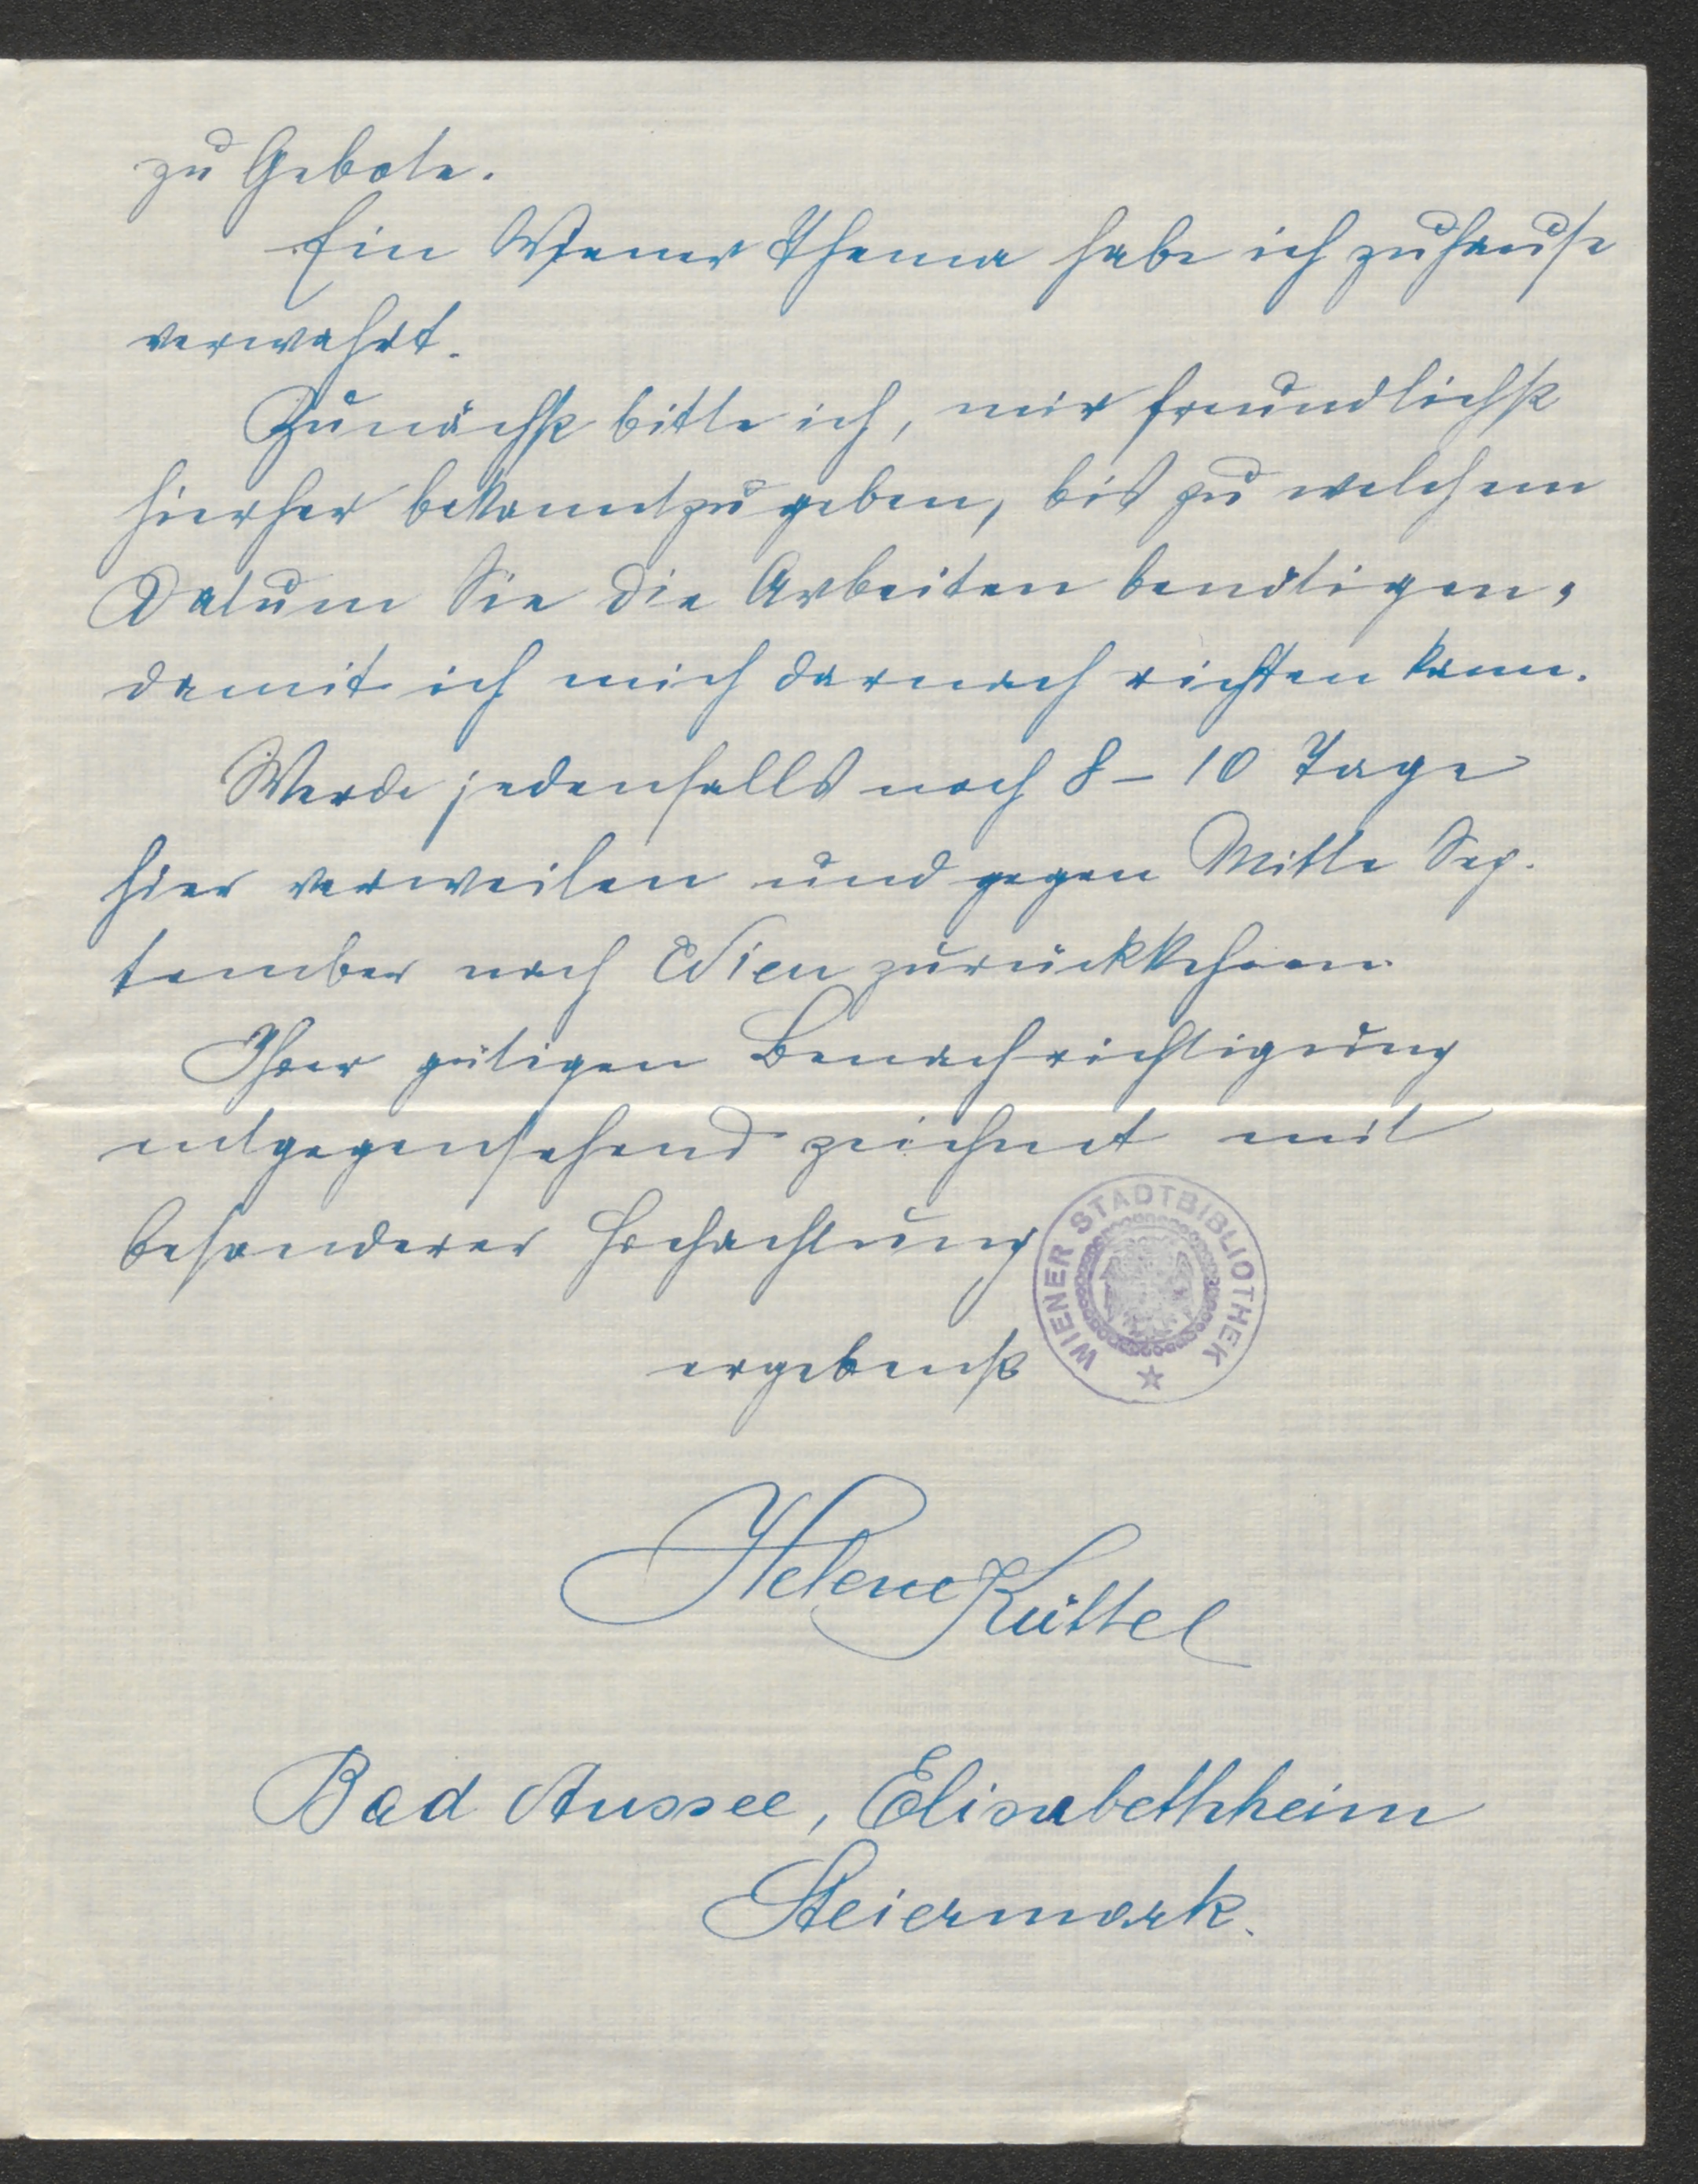 zu Gebote.
Ein Wiener Thema habe ich zuhause
verwahrt.
Zunächst bitte ich, mir freundlichst
hierher bekanntzugeben, bis zu welchem
Datum Sie die Arbeiten benötigen,
damit ich mich darnach richten kann.
Werde jedenfalls noch 8 – 10 Tage
hier verweilen und gegen Mitte Sep-
tember nach Wien zurückkehren.
Ihrer gütigen Benachrichtigung
entgegensehend zeichnet mit
besonderer Hochachtung
ergebenst
WIENER STADTBIBLIOTHEK
Helene Küttel
Bad Aussee, Elisabethheim
Steiermark.